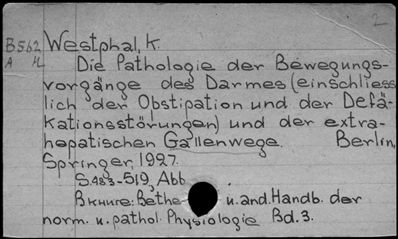 2
B562 Westphal, K.
A H Die Pathologie der Bewegungs-
vorgänge des Darmes (einschliess
lich der Obstipation und der Defä-
kationsstörungen) und der extra-
hepatischen Gallenwege. Berlin,
Springer, 1927.
S.483-519, Abb
В книге: Bethe u. and. Handb. der
norm. u. pathol. Physiologie Bd. 3.